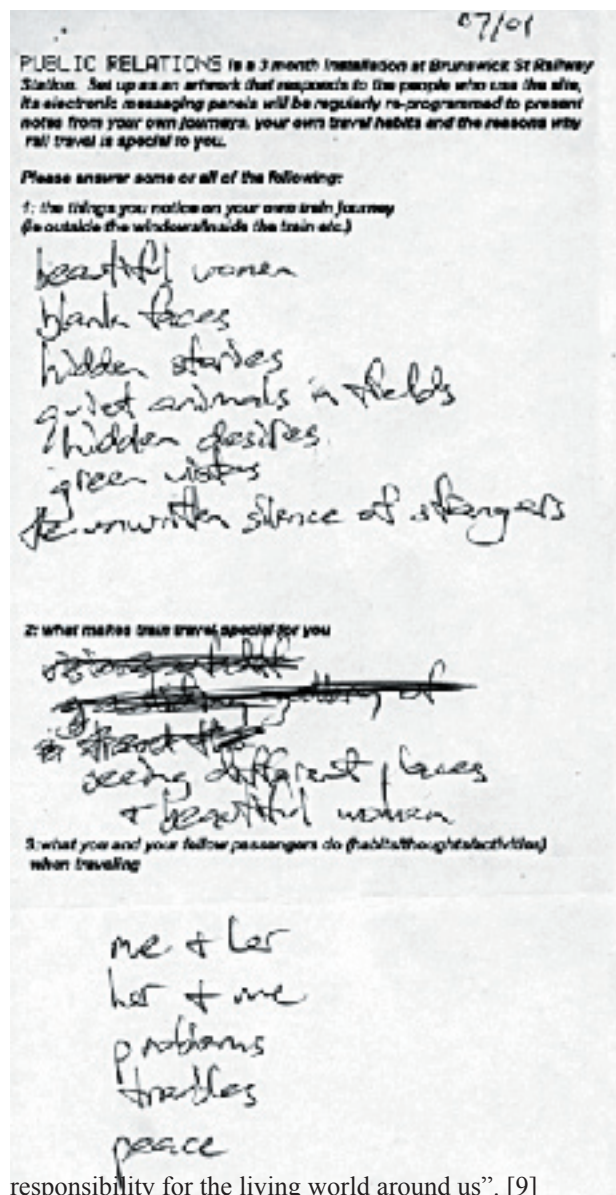 07/01
PUBLIC RELATIONS is a 3 month installation at Brunswick St Railway
Station. Set up as an artwork that responds to the people who use the site,
its electronic messaging panels will be regularly re-programmed to present
notes from your own journeys, your own travel habits and the reasons why
rail travel is special to you.
Please answer some or all of the following:
1: the things you notice on your own train journey
(ie outside the windows/inside the train etc.)
beautiful women
blank faces
hidden stories
quiet animals in fields
hidden desires
green vistas
the unwritten silence of strangers
2: what makes train travel special for you
of
seeing different places
+ beautiful women
3: what you and your fellow passengers do (habits/thoughts/activities)
when traveling
me + her
her + me
problems
troubles
peace
responsibility for the living world around us”. [9]